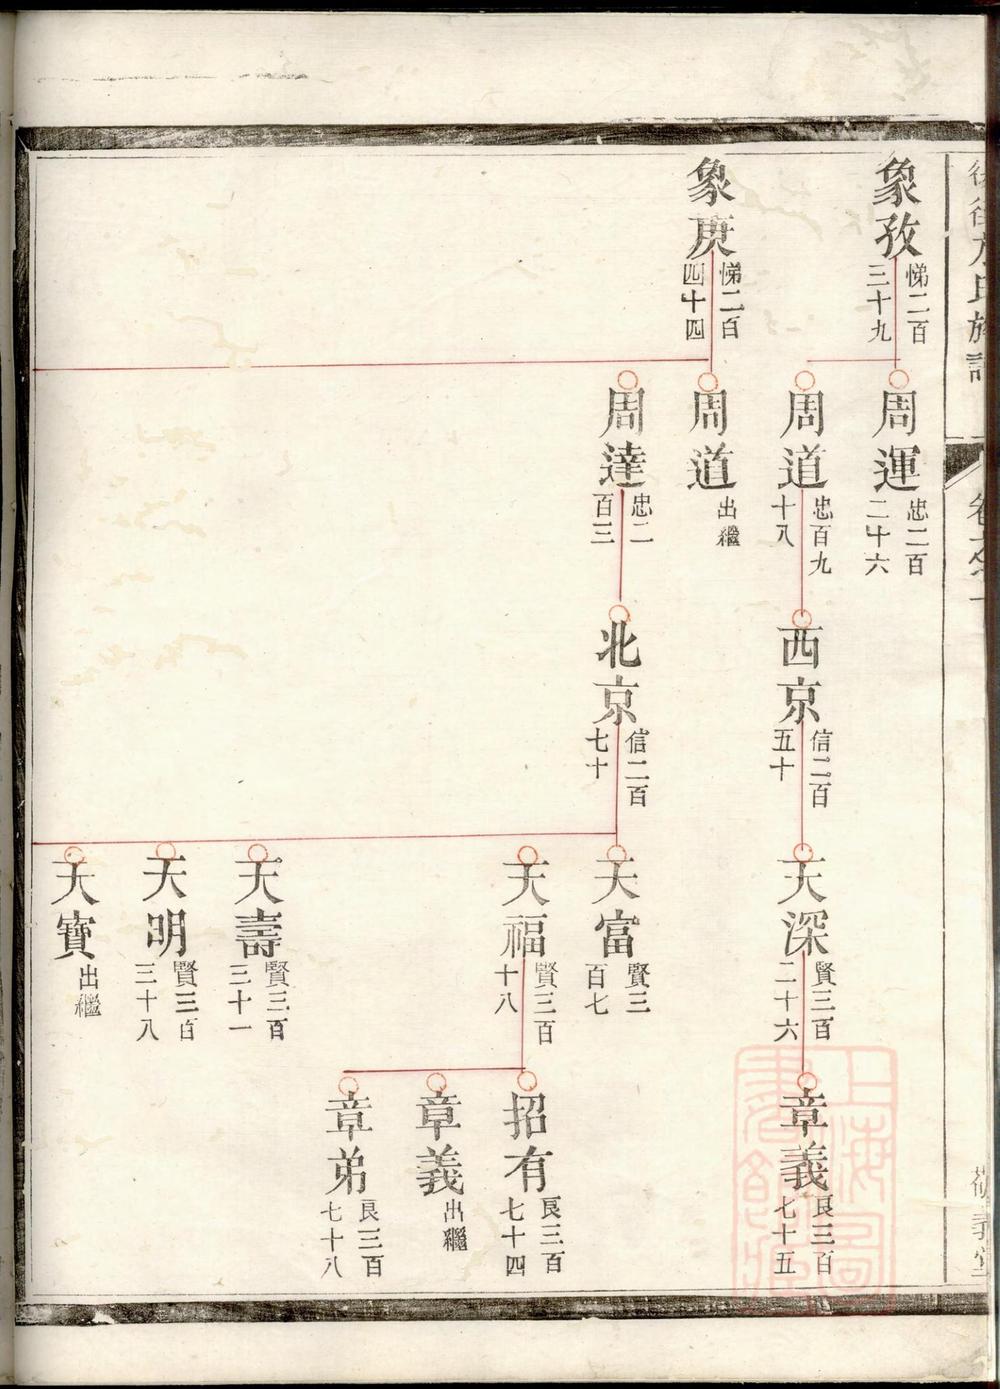 象孜
悌二百
三十九
象庚
悌二百
四十四
周運
忠二百
二十六
周道
忠百九
十八
周道
出繼
周達
忠二
百三
西京
信二百
五十
北京
信二百
七十
天深
賢三百
二十六
天富
賢三
百七
天福
賢三百
十八
天壽
賢三百
三十一
天明
賢三百
三十八
天寶
出繼
章義
良三百
七十五
招有
良三百
七十四
章義
出繼
章弟
良三百
七十八